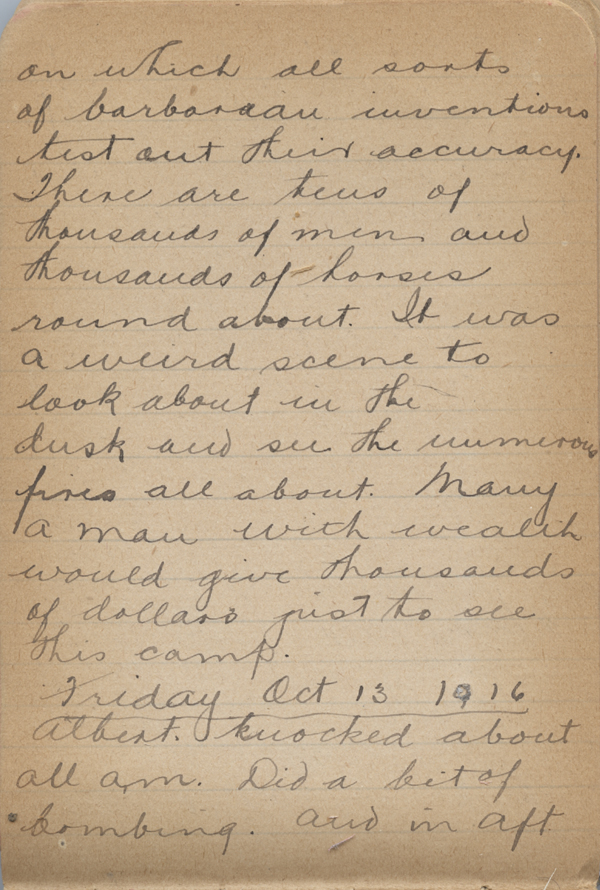 on which all sorts
of barbaraian inventions
test out their accuracy.
There are tens of
thousands of men and
thousands of horses
round about. It was
a weird scene to
look about in the
dusk and see the numerous
fires all about. Many
a man with wealth
would give thousands
of dollars just to see
this camp.
Friday Oct 13 1916
Albert. Knocked about
all am. Did a bit of
bombing. And in aft